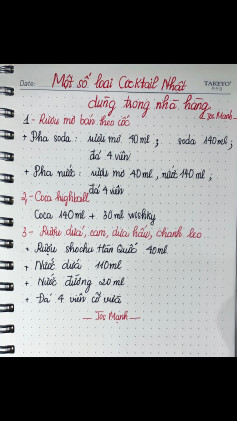 Date:
Một số loại Cocktail Nhật
TAKEYO
dùng trong nhà hàng
Jos Mạnh
1- Rượu mơ bán theo cốc
+ Pha soda: rượu mơ 40 ml; soda 140 ml;
đá 4 viên
+ Pha nước: rượu mơ 40 ml, nước 140 ml;
đá 4 viên
2, Coca highball
Coca 140 ml + 30 ml wishky
3- Rượu dứa, cam, dưa hấu, chanh leo
+ Rượu shochu Hàn Quốc 40ml
+ Nước dứa 110ml
+ Nước đường 20 ml
+ Đá 4 viên cỡ vừa
— Jos Mạnh —